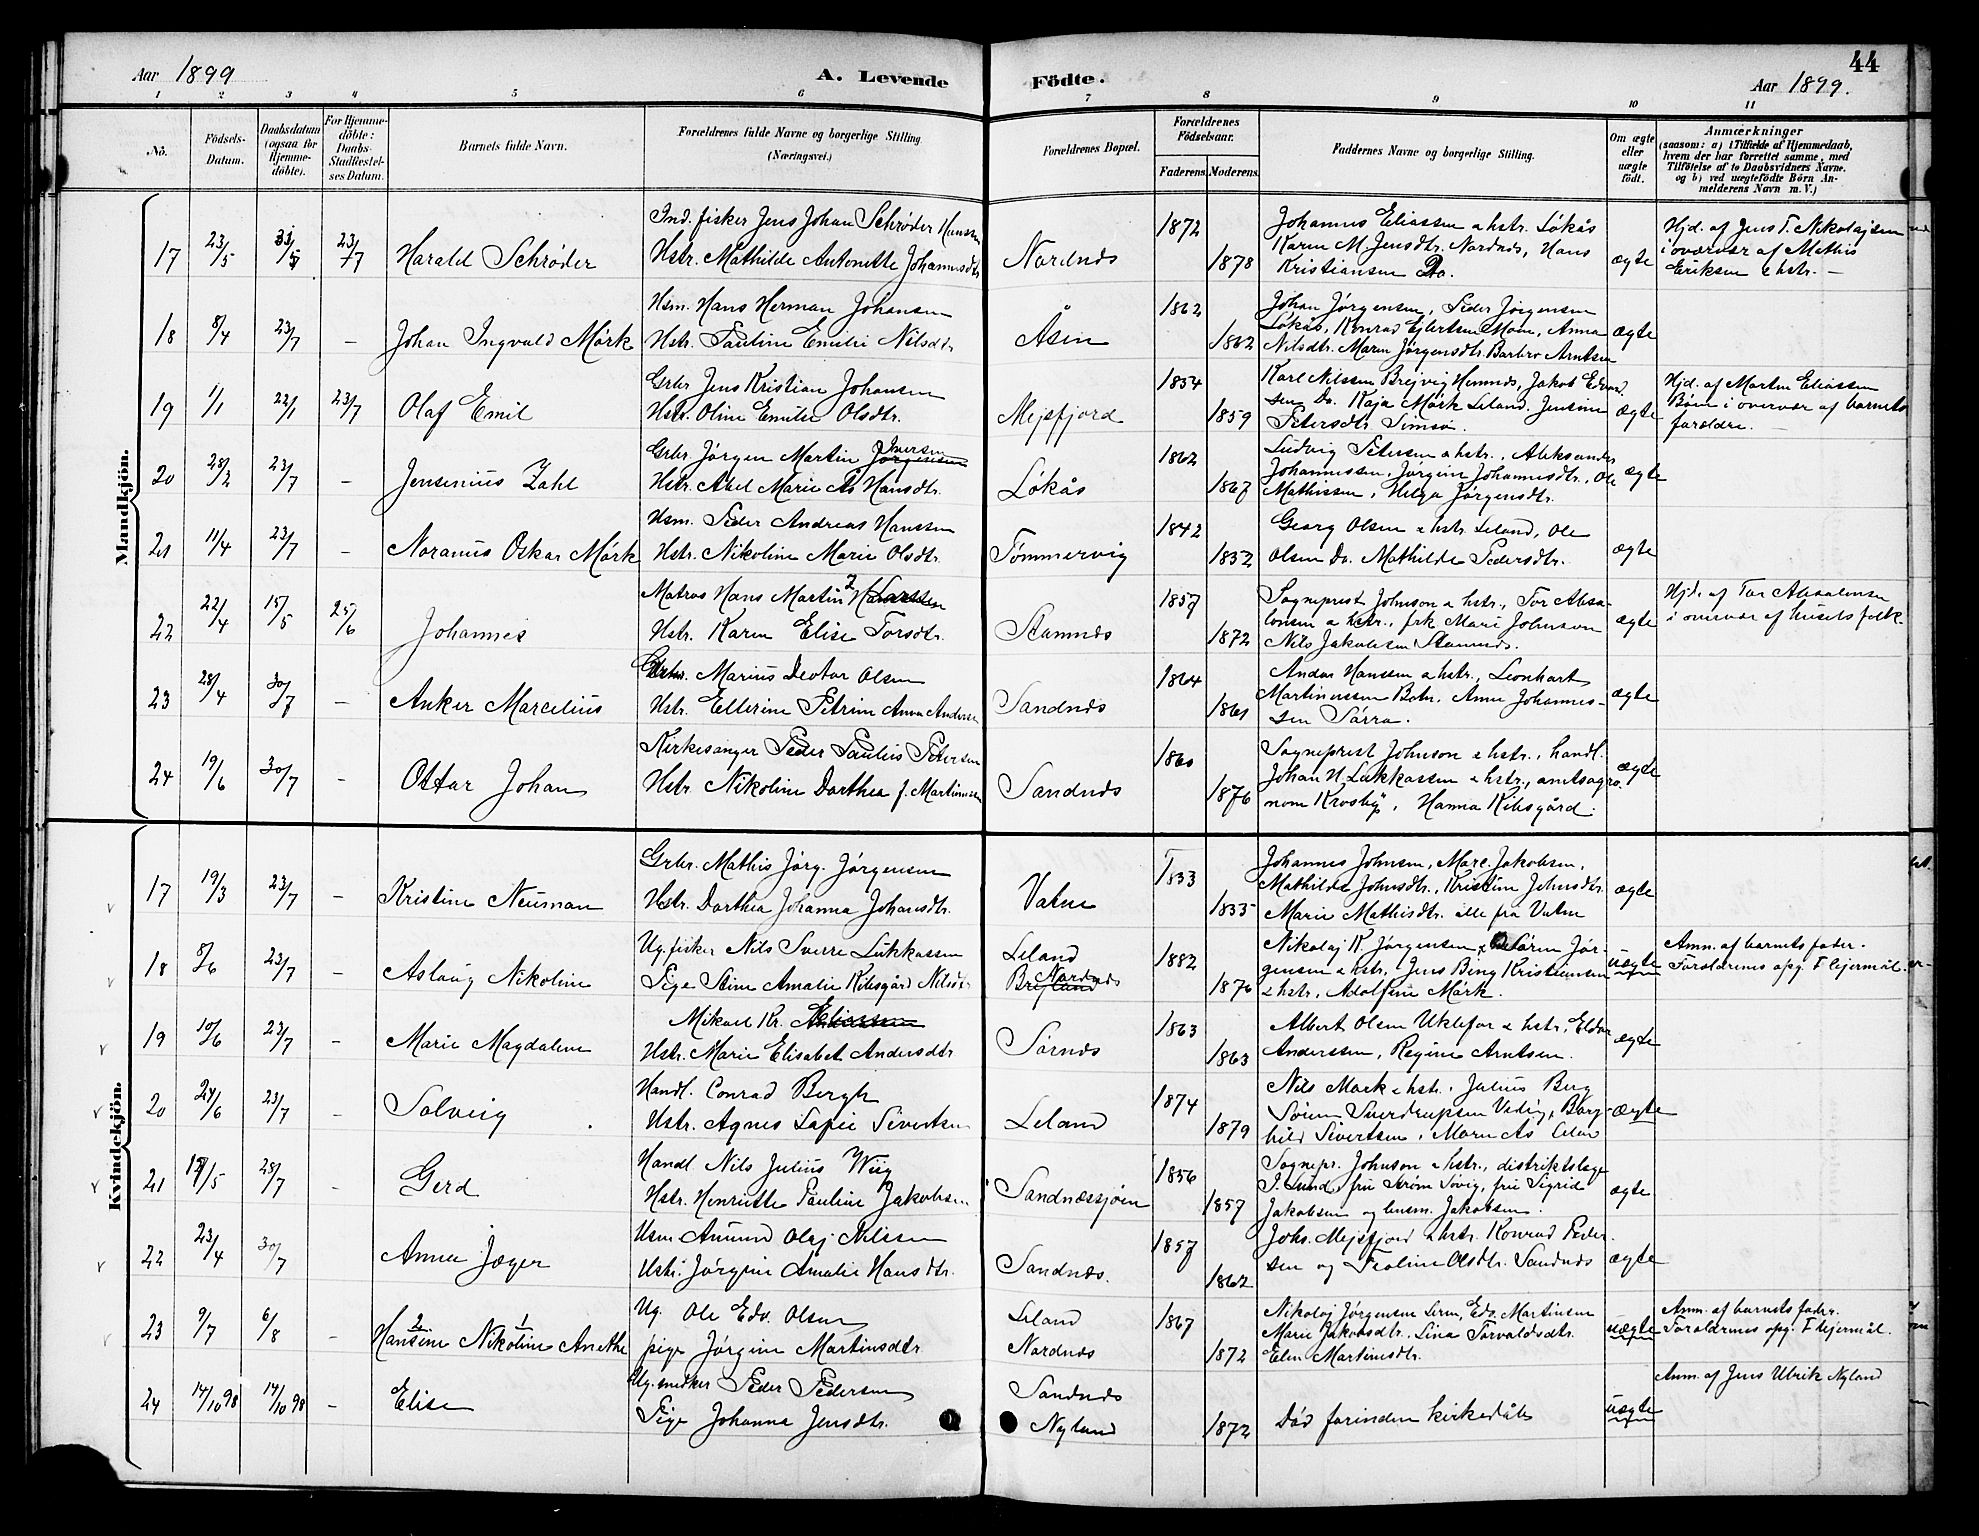 Aar 1899
A. Levende Födte.
Aar 1899.
44
1 2 3 4 5 6 7 8 9 10 11
No.
Födsels-Datum.
Daabsdatum (ogsaa for Hjemme-döbte).
For Hjemme-döbte: Daabs-Stadfæstel-ses Datum.
Barnets fulde Navn.
Forældrenes fulde Navne og borgerlige Stilling (Næringsvei.)
Forældrenes Bopæl.
Forældrenes Födselsaar.
Faderens. Moderens.
Faddernes Navne og borgerlige Stilling.
Om ægte eller uægte födt.
Anmærkninger
(saasom: a) i Tilfælde af Hjemmedaab,
hvem der har forrettet samme, med
Tilföielse af to Daabsvidners Navne,
og b) ved uægtefödte Börn An-
melderens Navn m. V.)
Mandkjön.
17 23/5 23/7 Harald Schrøder
Ind. fisker Jens Johan Schrøder Hanssen
Hstr. Mathilde Antonette Johannesdtr
Nordnes
1872
1878
Johannes Eliassen & hstr. Løkås
Karen M. Jensdtr. Nordnes, Hans
Kristiansen Do.
ægte
Hjd. af Jens T. Nikolajsen
i overvær af Mathis
Eriksen & hstr. —
18 8/4 23/7 — Johan Ingvald Mörk
Hsm. Hans Herman Johansen
Hstr. Pauline Emilie Nilsdtr
Åsen
1862
1862
Johan Jørgensen, Peder Jörgensen
Løkås, Konrad Ejlertsen Moen, Anna
Nilsdtr. Maren Jørgensdtr. Barbro Arntsen
ægte
19 1/1 22/1 23/7 Olaf Emil
Grbr Jens Kristian Johansen
Hstr. Oline Emilie Olsdtr.
Mejsfjord
1854
1859
Karl Nilssen Brejvig Hemnes, Jakob Edvard
sen Do. Kaja Mörk Leland. Jensine
Petersdtr. Simsø.
ægte
Hjd. af Morten Eliassen
Bøen i overvær af barnets
forældre. —
20 28/2 23/7 — Jensenius Zahl
Grbr. Jörgen Martin Iversen
Hstr. Abel Marie As Hansdtr.
Løkås
1862
1867
Ludvig Petersen & hstr., Aleksander
Johannessen, Jørgine Johannesdtr., Ole
Mathissen, Helga Jørgensdtr.
ægte
21 11/4 23/7 — Noranus Oskar Mörk
Hsm. Peder Andreas Hanssen
Hstr. Nikoline Marie Olsdtr.
Tømmervig
1842
1852
Georg Olsen & hstr. Leland, Ole
Olsen Do. Mathilde Pedersdtr.
ægte
22 22/4 15/5 25/6 Johannes
Matros Hans Martin
Hstr. Karen Elise Torsdtr.
Stamnes
1857
1872
Sogneprest Johnson & hstr., Tor Absa-
lonsen & hstr., frk Marie Johnson
Nils Jakobsen Stamnes.
ægte
Hjd. af Tor Absalonsen
i overvær af husets folk
23 28/4 30/7 — Anker Marcelius
Grbr. Marius Deotor Olsen
Hstr. Ellerine Petrine Anna Andersen
Sandnes
1864
1861
Andor Hanssen & hstr., Leonhart
Martinussen Botn. Anne Johannes-
sen Sörra.
ægte
24 19/6 30/7 — Ottar Johan
Kirkesanger Peder Paulus Petersen
Hstr. Nikoline Dorthea f. Martinussen
Sandnes
1860
1876
Sogneprest Johnson & hstr., handl.
Johan N. Lukkassen & hstr., amtsagro-
nom Krosby, Hanna Kibsgård.
ægte
Kvindekjön.
17 19/3 23/7 — Kristine Neuman
Grbr. Mathis Jörg. Jörgensen
Hstr. Dorthea Johanna Johansdtr.
Vatne
1833
1835
Johannes Johnsen, Marc. Jakobsen,
Mathilde Johnsdtr., Kristine Johnsdtr.
Marie Mathisdtr. alle fra Vatne
ægte
18 8/6 23/7 — Aslaug Nikoline
Ug. fisker Nils Sverre Lukkassen
Pige Stine Amalie Kibsgård Nilsdtr
Leland
Nordnes
1882
1876
Nikolaj K. Jørgensen & Søren Jör-
gensen & hstr, Jens Bing Kristensen
& hstr. Adolfine Mörk.
uægte
Anm. af barnets fader.
Forældrenes opg. 1 lejermål.
19 10/6 23/7 — Marie Magdalene
Mikael Kr. Eliassen
Hstr. Marie Elisabet Andersdtr
Sørnes
1863
1863
Albert Olsen Uklefor & hstr, Eldor
Anderssen, Regine Arntsen.
ægte
20 24/6 23/7 — Solveig
Handl. Conrad Bergh
Hstr. Agnes Sofie Sivertsen
Leland
1874
1879
Nils Mork & hstr. Julius Berg
Søren Sverdrupsen Veding, Borg-
hild Sivertsen, Maren As
ægte
21 /5 25/7 Gerd
Handl. Nils Julius Wiig
Hstr. Henriette Pauline Jakobsen
Sandnessjøen
1856
1857
Sognepr. Johnson & hstr., distriktslæge
J. Lund, fru Strøm Søvig, fru Sigrid
Jakobsen og lensm. Jakobsen.
ægte
22 23/4 30/7 Anna Jæger
Hsm Amund Olaj Nilssen
Hstr. Jörgine Amalie Hansdtr.
Sandnes.
1857
1862
Johs. Mejsfjord & hstr. Konrad Peder-
sen og Froline Olsdtr. Sandnes
ægte
23 9/7 6/8 — Hansine Nikoline Anethe
Ug. Ole Edv. Olsen
pige Jörgine Martinsdtr.
Leland
Nordnes
1867
1872
Nikolaj Jørgensen Leren, Edv. Martinsen
Marie Jakobsdtr. Lina Torvaldsdtr.
Elen Martinsdtr.
uægte
Anm. af barnets fader.
Forældrenes opg. 1 lejermål.
24 14/10 98 14/10 98 — Elise
Ug. snedker Peder Pedersen
Pige Johanna Jensdtr.
Sandnes
Nyland
1872
Død forinden kirkedåb
uægte
Anm. af Jens Ulrik Nyland